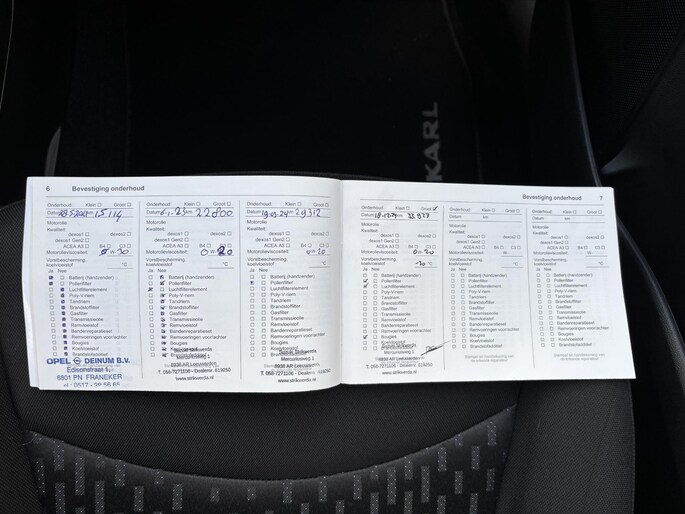 KARL
6 Bevestiging onderhoud
Onderhoud: Klein Groot
Datum km 15 114
Motorolie
Kwaliteit:
dexos1 dexos2
dexos1 Gen2
ACEA A3 B4 C3
Motorolieviscositeit: W-30
Vorstbescherming,
koelvloeistof: °C
Ja Nee
Batterij (handzender)
Pollenfilter
Luchtfilterelement
Poly-V-riem
Tandriem
Brandstoffilter
Gasfilter
Transmissieolie
Remvloeistof
Bandenreparatieset
Remvoeringen voor/achter
Bougies
Koelvloeistof
Brandstofadditief
OPEL DEINUM B.V.
Edisonstraat
8801 PN FRANEKER
Onderhoud: Klein Groot
Datum 6-1-23 km 22800
Motorolie
Kwaliteit:
dexos1 dexos2
dexos1 Gen2
ACEA A3 B4 C3
Motorolieviscositeit: 0 W-20
Vorstbescherming,
koelvloeistof: °C
Ja Nee
Batterij (handzender)
Pollenfilter
Luchtfilterelement
Poly-V-riem
Tandriem
Brandstoffilter
Gasfilter
Transmissieolie
Remvloeistof
Bandenreparatieset
Remvoeringen voor/achter
Bougies
Koelvloeistof
Mercuriusweg 1
8938 AR Leeuwarden
T. 058-7271108 - Dealernr. 619260
www.strikwerda.nl
Onderhoud: Klein Groot
Datum km 29312
Motorolie
Kwaliteit:
dexos1 dexos2
dexos1 Gen2
ACEA A3 B4 C3
Motorolieviscositeit:
Vorstbescherming,
koelvloeistof: °C
Ja Nee
Batterij (handzender)
Pollenfilter
Luchtfilterelement
Poly-V-riem
Tandriem
Brandstoffilter
Gasfilter
Transmissieolie
Remvloeistof
Bandenreparatieset
Remvoeringen voor/achter
Bougies
Koelvloeistof
Mercuriusweg 1
8938 AR Leeuwarden
T. 058-7271108 - Dealernr. 619260
www.strikwerda.nl
Bevestiging onderhoud 7
Onderhoud: Klein Groot
Datum km
Motorolie
Kwaliteit:
dexos1 dexos2
dexos1 Gen2
ACEA A3 B4 C3
Motorolieviscositeit: 0W-20
Vorstbescherming,
koelvloeistof: -30 °C
Ja Nee
Batterij (handzender)
Pollenfilter
Luchtfilterelement
Poly-V-riem
Tandriem
Brandstoffilter
Gasfilter
Transmissieolie
Remvloeistof
Bandenreparatieset
Remvoeringen voor/achter
Bougies
Koelvloeistof
Mercuriusweg 1
8938 AR Leeuwarden
T. 058-7271108 - Dealernr. 619260
www.strikwerda.nl
Onderhoud: Klein Groot
Datum km
Motorolie
Kwaliteit:
dexos1 dexos2
dexos1 Gen2
ACEA A3 B4 C3
Motorolieviscositeit:
Vorstbescherming,
koelvloeistof: °C
Ja Nee
Batterij (handzender)
Pollenfilter
Luchtfilterelement
Poly-V-riem
Tandriem
Brandstoffilter
Gasfilter
Transmissieolie
Remvloeistof
Bandenreparatieset
Remvoeringen voor/achter
Bougies
Koelvloeistof
Brandstofadditief
Onderhoud: Klein Groot
Datum km
Motorolie
Kwaliteit:
dexos1 dexos2
dexos1 Gen2
ACEA A3 B4 C3
Motorolieviscositeit:
Vorstbescherming,
koelvloeistof: °C
Ja Nee
Batterij (handzender)
Pollenfilter
Luchtfilterelement
Poly-V-riem
Tandriem
Brandstoffilter
Gasfilter
Transmissieolie
Remvloeistof
Bandenreparatieset
Remvoeringen voor/achter
Bougies
Koelvloeistof
Brandstofadditief